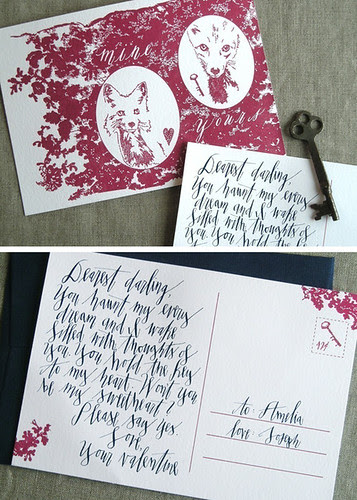 mine
yours
Dearest darling,
You haunt my every
dream and I wake
filled with thoughts of
you. You hold the key
Dearest darling,
You haunt my every
dream and I wake
filled with thoughts of
you. You hold the key
to my heart. Won't you
be my sweetheart?
Please say yes.
Love,
Your valentine
to: Amelia
love: Joseph